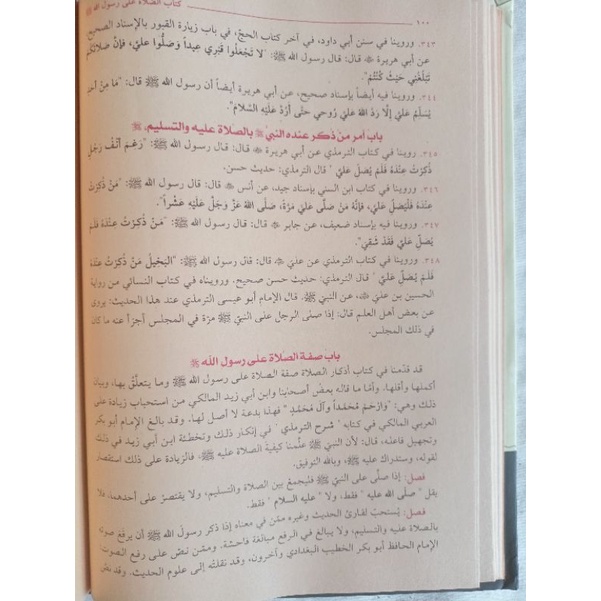 ١٠٠ كتاب الصلاة على رسول الله ﷺ
٣٤٣. وروينا في سنن أبي داود، في آخر كتاب الحجّ، في باب زيارة القبور بالإسناد الصحيح
عن أبي هريرة ﷺ قال: قال رسول الله ﷺ: "لا تَجْعَلُوا قَبْرِي عِيداً وَصَلُّوا عليّ، فإنَّ صَلاتَكُم
تَبْلُغُني حَيْثُ كُنْتُمْ".
٣٤٤. وروينا فيه أيضاً بإسناد صحيح، عن أبي هريرة أيضاً أن رسول الله ﷺ قال: "مَا مِنْ أحَدٍ
يُسَلِّمُ عَليَّ إِلَّا رَدَّ اللهُ عَليَّ رُوحِي حتَّى أَرُدَّ عَلَيْهِ السَّلامَ".
باب أمر من ذُكر عنده النبيّ ﷺ بالصلاة عليه والتسليم، ﷺ
٣٤٥. روينا في كتاب الترمذي عن أبي هريرة قال: قال رسول الله ﷺ: "رَغِمَ أنْفُ رَجُلٍ
ذُكِرْتُ عِنْدَهُ فَلَمْ يُصَلِّ عَليَّ" قال الترمذي: حديث حسن.
٣٤٦. وروينا في كتاب ابن السني بإسناد جيد، عن أنس قال: قال رسول الله ﷺ: "مَنْ ذُكِرْتُ
عِنْدَهُ فَلْيُصَلِّ عَليَّ، فإنَّهُ مَنْ صَلَّى عَليَّ مَرَّةً، صَلَّى اللهُ عَزَّ وَجَلَّ عَلَيْهِ عَشْراً".
٣٤٧. وروينا فيه بإسناد ضعيف، عن جابر قال: قال رسول الله ﷺ: "مَنْ ذُكِرْتُ عِنْدَهُ فَلَمْ
يُصَلِّ عَليَّ فَقَدْ شَقِيَ".
٣٤٨. وروينا في كتاب الترمذي عن عليّ قال: قال رسول الله ﷺ: "البَخِيلُ مَنْ ذُكِرْتُ عِنْدَهُ
فَلَمْ يُصَلِّ عَليَّ" قال الترمذي: حديث حسن صحيح. ورويناه في كتاب النسائي من رواية
الحسين بن عليّ، عن النبيّ ﷺ. قال الإمام أبو عيسى الترمذي عند هذا الحديث: يروى
عن بعض أهل العلم قال: إذا صلّى الرجل على النبيّ ﷺ مرّة في المجلس أجزأ عنه ما كان
في ذلك المجلس.
باب صفة الصلاة على رسول الله ﷺ
قد قدّمنا في كتاب أذكار الصلاة صفة الصلاة على رسول الله ﷺ وما يتعلّق بها، وبيان
أكملها وأقلها. وأما ما قاله بعضُ أصحابنا وابن أبي زيد المالكي من استحباب زيادة على
ذلك وهي: "وَارْحَمْ مُحَمَّداً وآلَ مُحَمَّدٍ" فهذا بدعة لا أصل لها. وقد بالغ الإمام أبو بكر
العربي المالكي في كتابه "شرح الترمذي" في إنكار ذلك وتخطئة ابن أبي زيد في ذلك
وتجهيل فاعله، قال: لأن النبيّ ﷺ علَّمنا كيفيةَ الصلاة عليه ﷺ، فالزيادة على ذلك استقصار
لقوله، وستدراك عليه ﷺ، وبالله التوفيق.
فصل: إذا صلَّى على النبيّ ﷺ فليجمعْ بين الصلاة والتسليم، ولا يقتصرْ على أحدهما، فلا
يقل "صلَّى الله عليه" فقط، ولا "عليه السلام" فقط.
فصل: يُستحبّ لقارئ الحديث وغيره ممّن في معناه إذا ذكر رسولَ الله ﷺ أن يرفعَ صوته
بالصلاة عليه والتسليم، ولا يبالغ في الرفع مبالغة فاحشة. وممّن نصّ على رفع الصوت:
الإمام الحافظ أبو بكر الخطيب البغدادي وآخرون، وقد نقلتُه إلى علوم الحديث. وقد نصّ